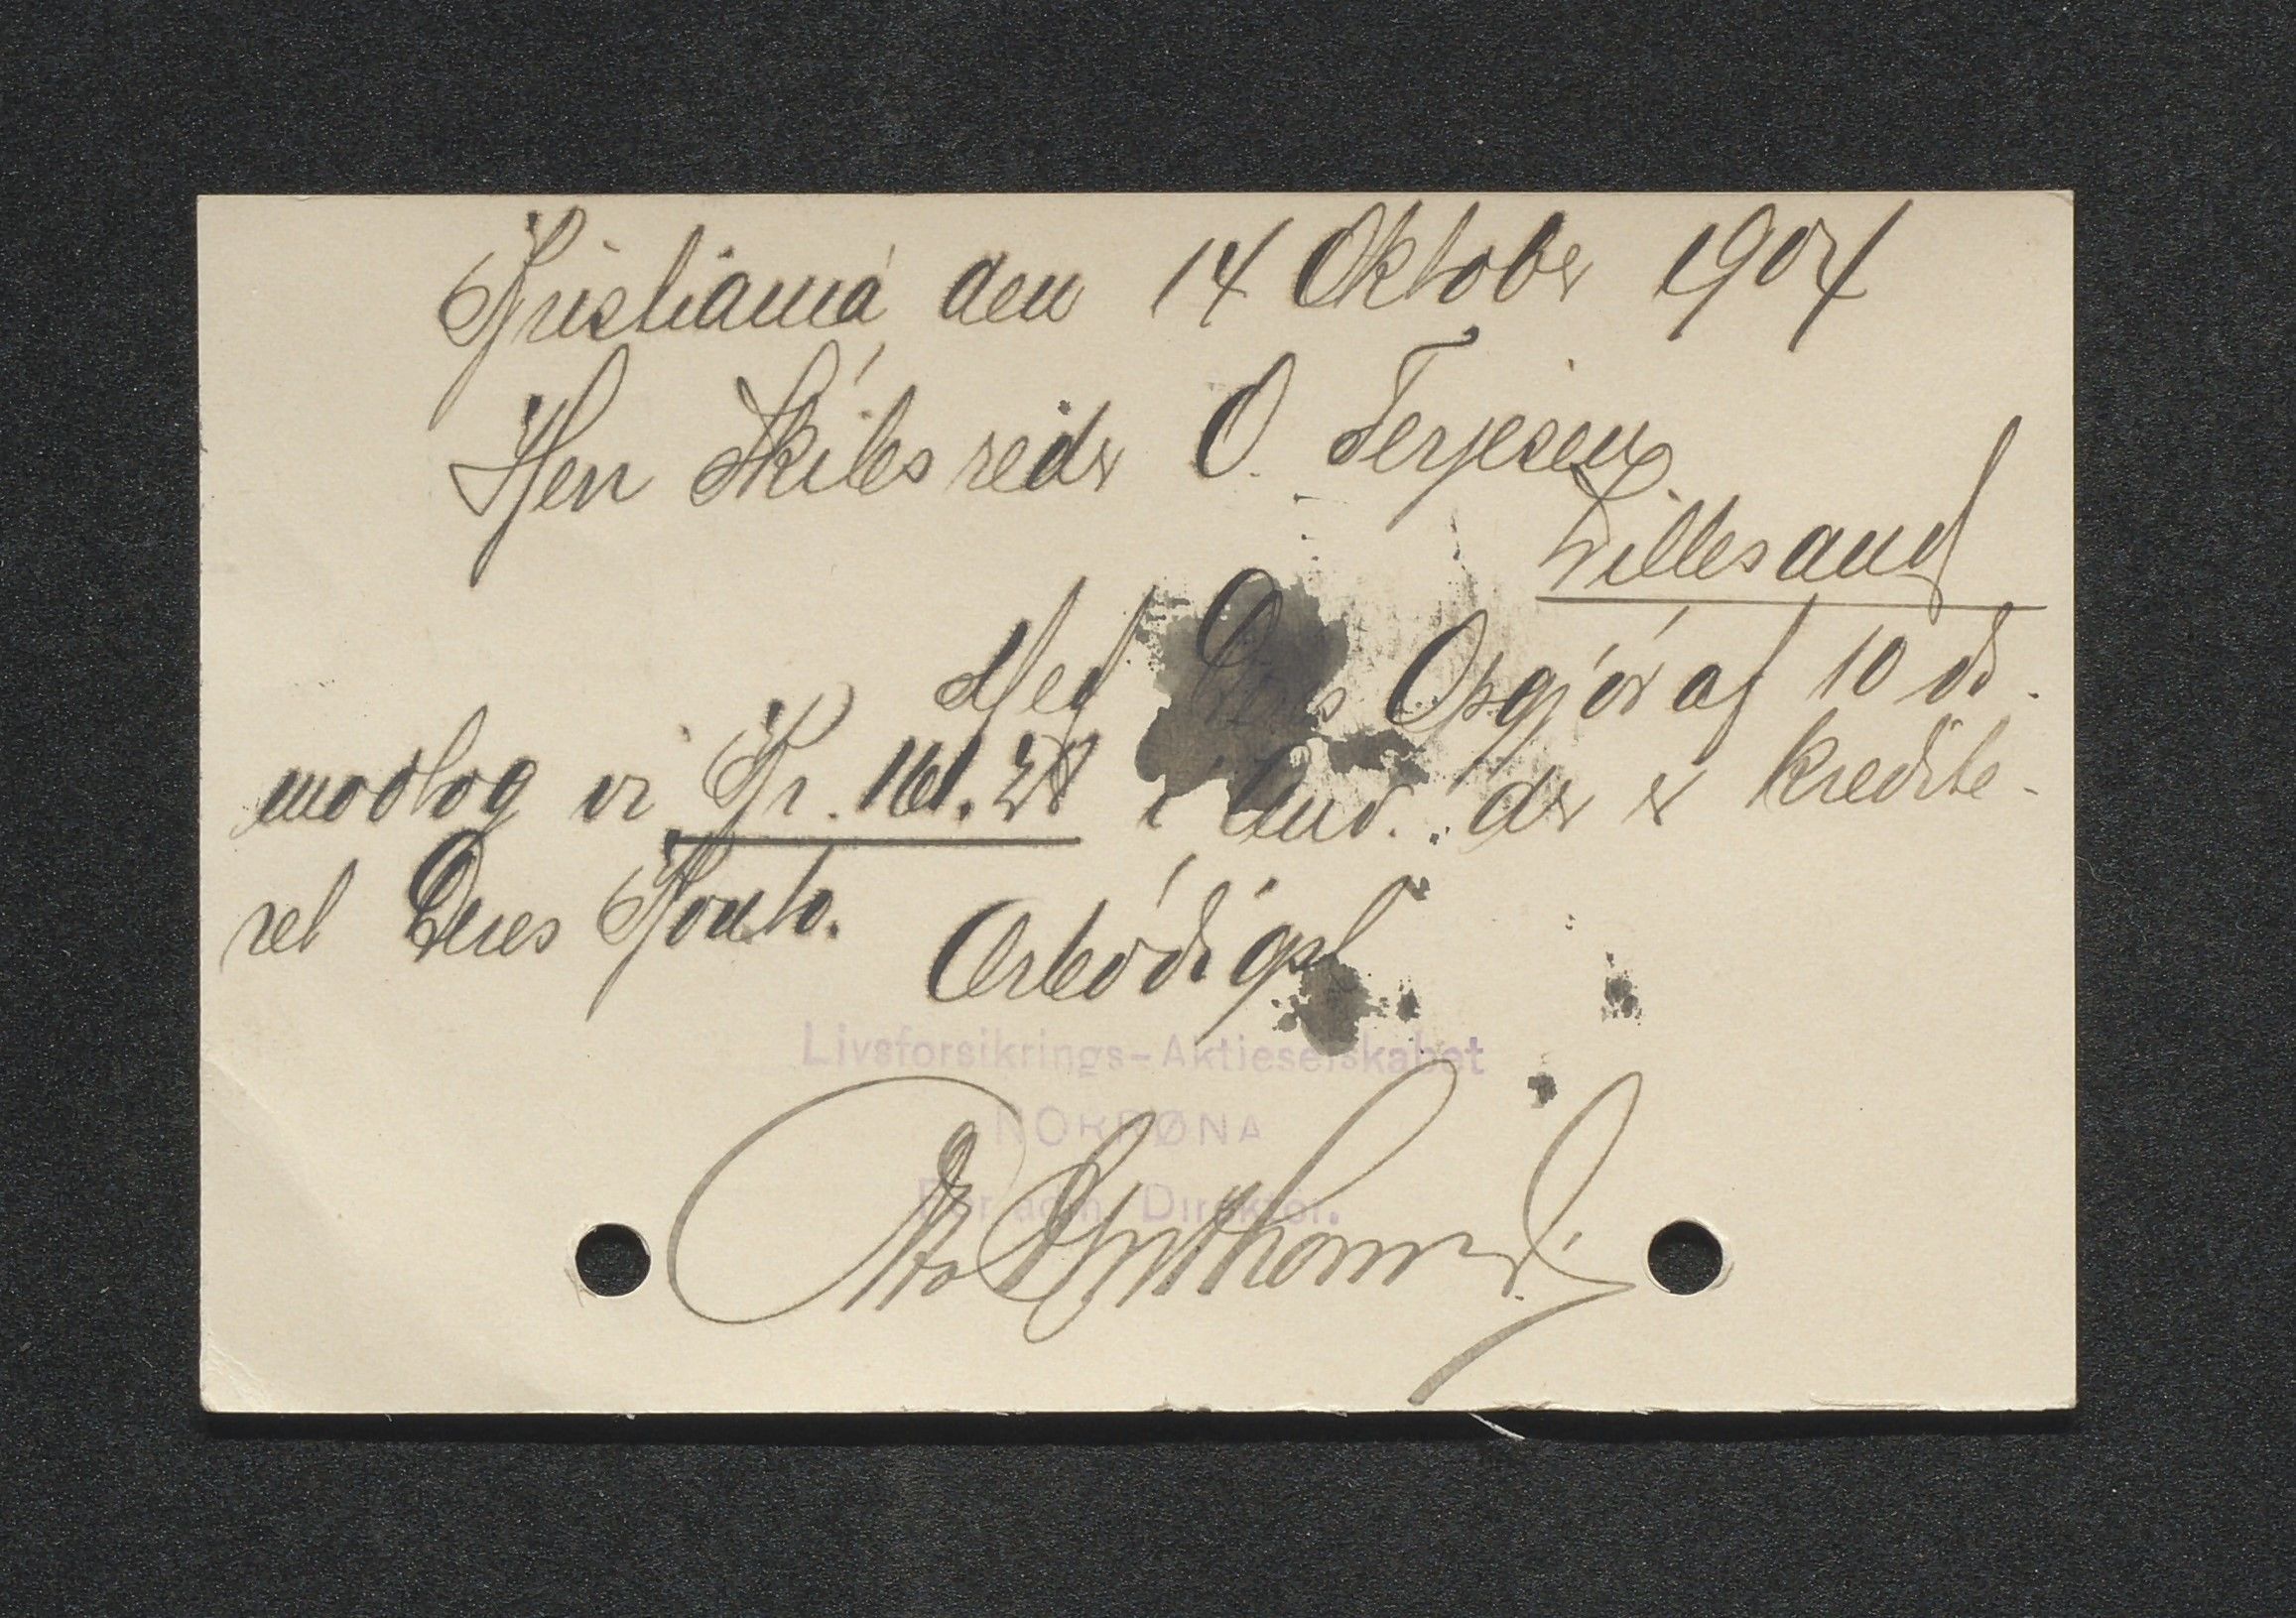 Kristiania den 14 Oktober 1904
Herr Skibsreder O. Terjesen
Lillesand
Med Deres Opgjør af 10 ds.
modtog vi Kr. 161. i Anv. der er kredite-
ret Deres Konto.
Ærbødigst
Livsforsikrings-Aktieselskabet
NORRØNA
For adm. Direktør.